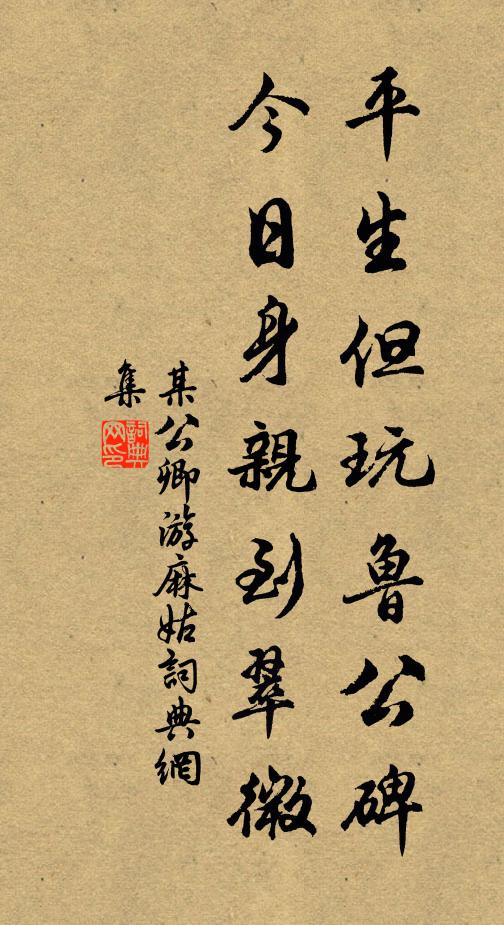 平生但玩魯公碑
今日身親到翠微
某公卿游麻姑詞典網
集
詞典
网印